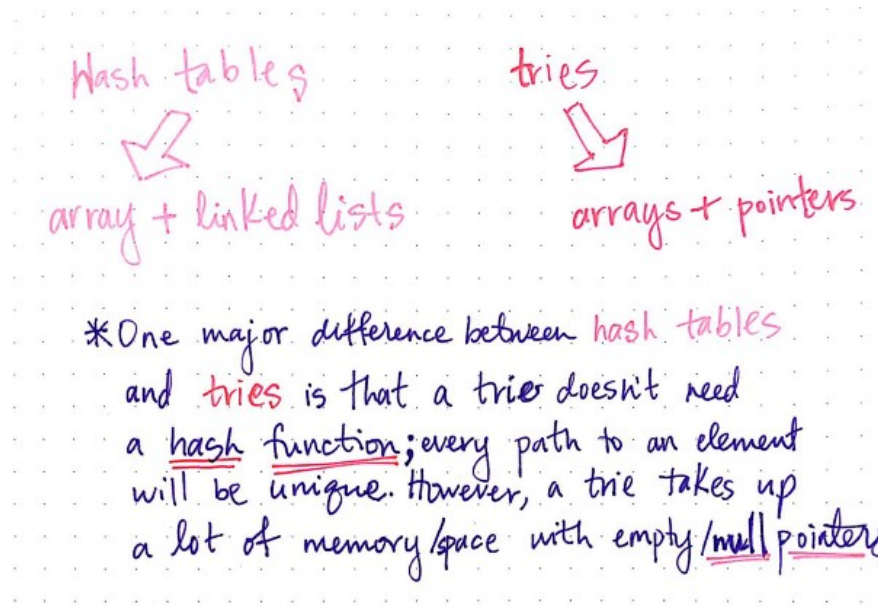 Hash tables
tries
array + linked lists
arrays + pointers
*One major difference between hash tables
and tries is that a trie doesn't need
a hash function; every path to an element
will be unique. However, a trie takes up
a lot of memory/space with empty/null pointers